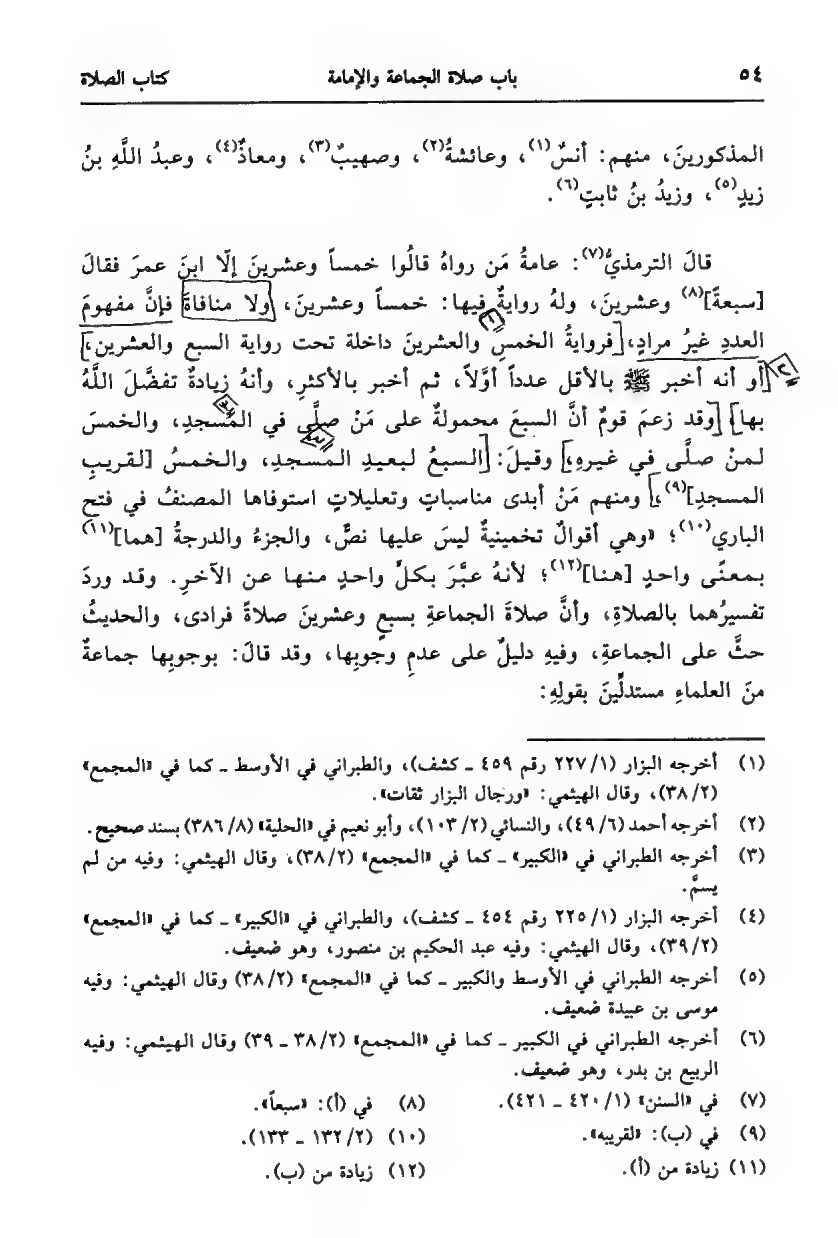 ٥٤ باب صلاة الجماعة والإمامة كتاب الصلاة
المذكورينَ، منهم: أنسٌ(١)، وعائشةُ(٢)، وصهيبٌ(٣)، ومعاذٌ(٤)، وعبدُ اللَّهِ بنُ
زيدٍ(٥)، وزيدُ بنُ ثابتٍ(٦).
قالَ الترمذيُّ(٧): عامةُ مَن رواهُ قالُوا خمساً وعشرينَ إلّا ابنَ عمرَ فقالَ
[سبعةً](٨) وعشرينَ، ولهُ روايةٌ فيها: خمساً وعشرينَ، ولا منافاةَ فإنَّ مفهومَ
العددِ غيرُ مرادٍ، فروايةُ الخمسِ والعشرينَ داخلة تحت رواية السبع والعشرين،
أو أنه أخبر ﷺ بالأقل عدداً أوَّلاً، ثم أخبر بالأكثرِ، وأنهُ زيادةٌ تفضَّلَ اللَّهُ
بها، وقد زعمَ قومٌ أنَّ السبعَ محمولةٌ على مَنْ صلَّى في المسجدِ، والخمسَ
لمنْ صلَّى في غيرهِ، وقيلَ: السبعُ لبعيدِ المسجدِ، والخمسُ [لقريبِ
المسجدِ](٩)، ومنهم مَنْ أبدى مناسباتٍ وتعليلاتٍ استوفاها المصنفُ في فتح
الباري(١٠)؛ «وهي أقوالٌ تخمينيةٌ ليسَ عليها نصٌّ، والجزءُ والدرجةُ [هما](١١)
بمعنًى واحدٍ [هنا](١٢)؛ لأنهُ عبَّرَ بكلِّ واحدٍ منها عن الآخرِ. وقد وردَ
تفسيرُهما بالصلاةِ، وأنَّ صلاةَ الجماعةِ بسبعٍ وعشرينَ صلاةً فرادى، والحديثُ
حثَّ على الجماعةِ، وفيهِ دليلٌ على عدمِ وجوبِها، وقد قالَ: بوجوبِها جماعةٌ
منَ العلماءِ مستدلِّينَ بقولِهِ:
(١) أخرجه البزار (١/ ٢٢٧ رقم ٤٥٩ ـ كشف)، والطبراني في الأوسط ـ كما في «المجمع»
(٢/ ٣٨)، وقال الهيثمي: «ورجال البزار ثقات».
(٢) أخرجه أحمد (٦/ ٤٩)، والنسائي (٢/ ١٠٣)، وأبو نعيم في «الحلية» (٨/ ٣٨٦) بسند صحيح.
(٣) أخرجه الطبراني في «الكبير» ـ كما في «المجمع» (٢/ ٣٨)، وقال الهيثمي: وفيه من لم
يسمَّ.
(٤) أخرجه البزار (١/ ٢٢٥ رقم ٤٥٤ ـ كشف)، والطبراني في «الكبير» ـ كما في «المجمع»
(٢/ ٣٩)، وقال الهيثمي: وفيه عبد الحكيم بن منصور، وهو ضعيف.
(٥) أخرجه الطبراني في الأوسط والكبير ـ كما في «المجمع» (٢/ ٣٨) وقال الهيثمي: وفيه
موسى بن عبيدة ضعيف.
(٦) أخرجه الطبراني في الكبير ـ كما في «المجمع» (٢/ ٣٨ ـ ٣٩) وقال الهيثمي: وفيه
الربيع بن بدر، وهو ضعيف.
(٧) في «السنن» (١/ ٤٢٠ ـ ٤٢١). (٨) في (أ): «سبعاً».
(٩) في (ب): «لقريبه». (١٠) (٢/ ١٣٢ ـ ١٣٣).
(١١) زيادة من (أ). (١٢) زيادة من (ب).